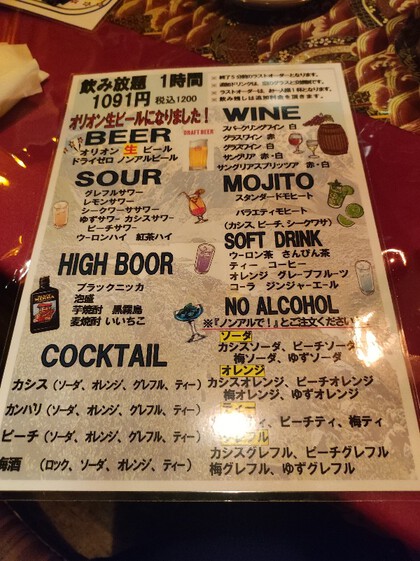 飲み放題 1時間
1091円 税込1200
オリオン生ビールになりました！
BEER
DRAFT BEER
オリオン 生 ビール
ドライゼロ ノンアルビール
SOUR
グレフルサワー
レモンサワー
シークワーササワー
ゆずサワー カシスサワー
ピーチサワー
ウーロンハイ 紅茶ハイ
HIGH BOOR
ブラックニッカ
泡盛
芋焼酎 黒霧島
麦焼酎 いいちこ
COCKTAIL
カシス（ソーダ、オレンジ、グレフル、ティー）
カンパリ（ソーダ、オレンジ、グレフル、ティー）
ピーチ（ソーダ、オレンジ、グレフル、ティー）
梅酒（ロック、ソーダ、オレンジ、ティー）
※ラストオーダーは、お一人様1杯となります。
※飲み残しは追加料金を頂きます。
WINE
スパークリングワイン 白
グラスワイン 赤
グラスワイン 白
サングリア 赤・白
サングリアスプリッツァ 赤・白
MOJITO
スタンダードモヒート
バラエティモヒート
（カシス、ピーチ、シークワサ）
SOFT DRINK
ウーロン茶 さんぴん茶
ティー コーヒー
オレンジ グレープフルーツ
コーラ ジンジャーエール
NO ALCOHOL
※『ノンアルで！』とご注文ください
ソーダ
カシスソーダ、ピーチソーダ
梅ソーダ、ゆずソーダ
オレンジ
カシスオレンジ、ピーチオレンジ
梅オレンジ、ゆずオレンジ
ティー
ピーチティ、梅ティ
グレフル
カシスグレフル、ピーチグレフル
梅グレフル、ゆずグレフル